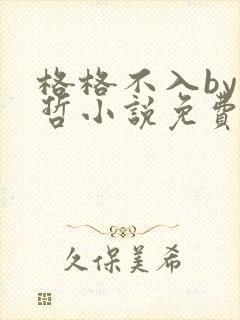 格格不入by
哲小說免費
久保美希